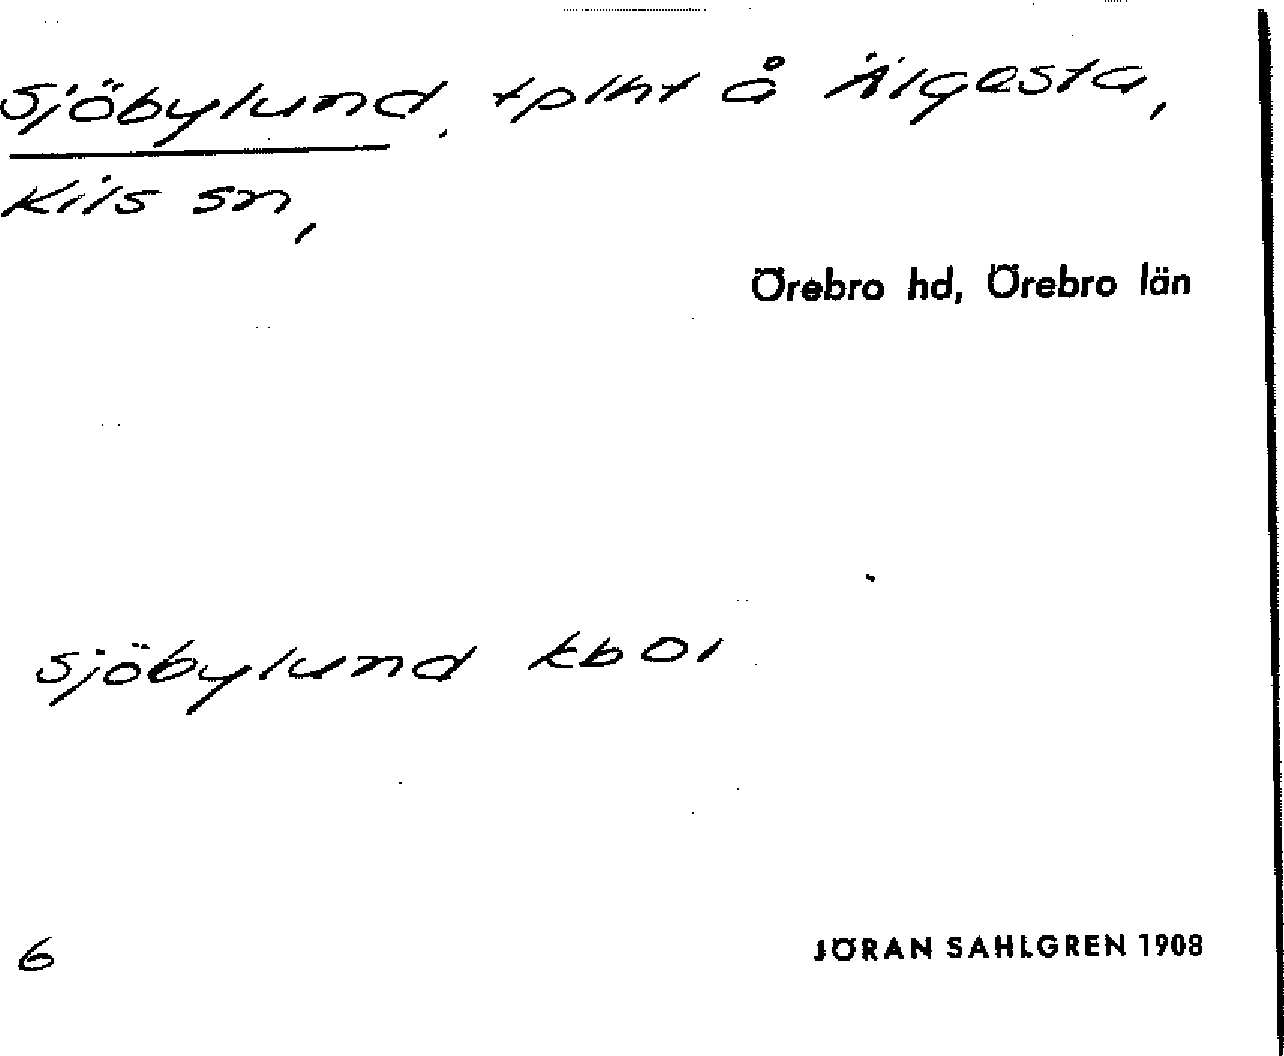 Sjöbylund, tplht å Älgesta,
Kils sn,
Örebro hd, Örebro län
Sjöbylund kb 01
6
JÖRAN SAHLGREN 1908